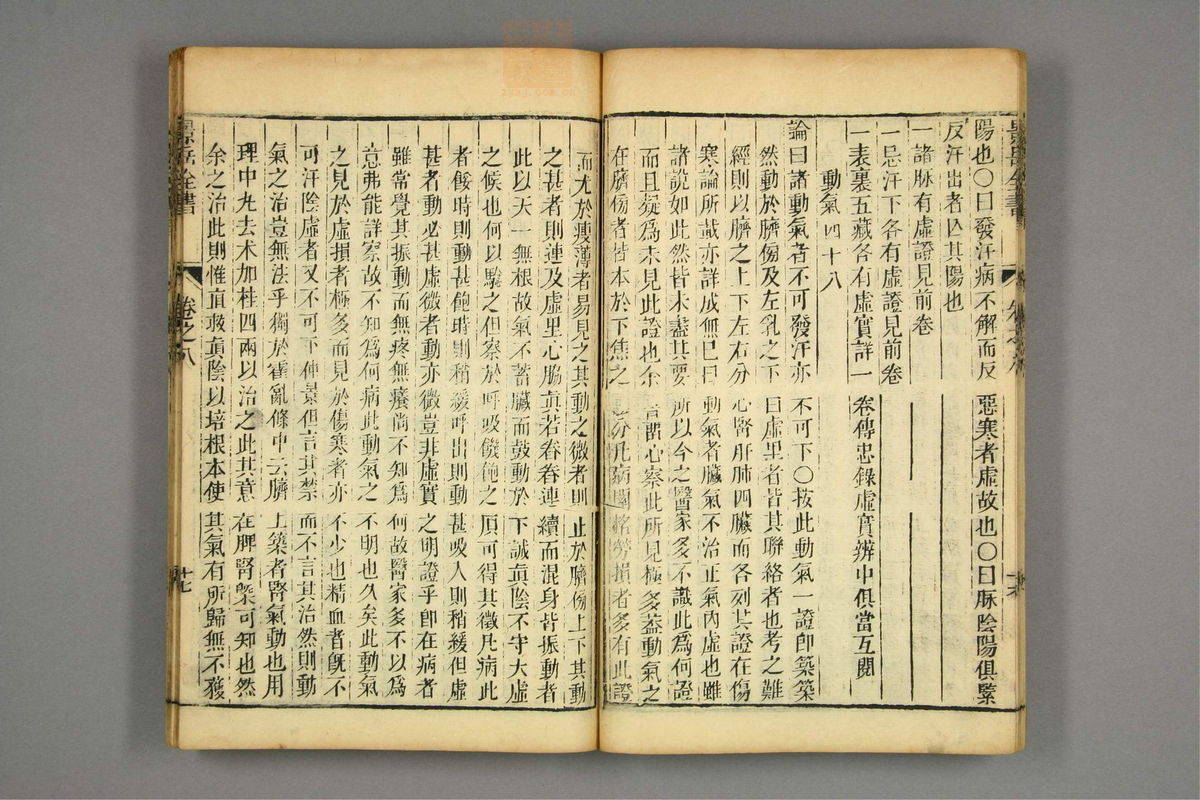 陽也〇曰發汗病不解而反惡寒者虛故也〇曰脉陰陽俱緊
反汗出者亾其陽也
一諸脉有虛證見前卷
一忌汗下各有虛證見前卷
一表裏五藏各有虛實詳一卷傳忠錄虛實辨中俱當互閱
動氣 四十八
論曰諸動氣者不可發汗亦不可下〇按此動氣一證卽築築
然動於臍傍及左乳之下曰虛里者皆其聯絡者也考之難
經則以臍之上下左右分心腎肝肺四臟而各列其證在傷
寒論所載亦詳成無已曰動氣者臟氣不治正氣內虛也雖
諸說如此然皆未盡其要所以今之醫家多不識此爲何證
而且疑爲未見此證也余留心察此所見極多蓋動氣之
在臍傍者皆本於下焦之 勞損者多有此證
景岳全書
卷之八
而尤於瘦薄者易見之其動之微者則止於臍傍上下其動
之甚者則連及虛里心脇眞若舂舂連續而混身皆振動者
此以天一無根故氣不蓄臟而鼓動於下誠眞陰不守大虛
之候也何以驗之但察於呼吸饑飽之頃可得其徵凡病此
者餒時則動甚飽時則稍緩呼出則動甚吸入則稍緩但虛
甚者動必甚虛微者動亦微豈非虛實之明證乎卽在病者
雖常覺其振動而無疼無癢尚不知爲何故醫家多不以爲
意弗能詳察故不知爲何病此動氣之不明也久矣此動氣
之見於虛損者極多而見於傷寒者亦不少也精血者旣不
可汗陰虛者又不可下仲景但言其禁而不言其治然則動
氣之治豈無法乎獨於霍亂條中云臍上築者腎氣動也用
理中丸去术加桂四兩以治之此其意在脾腎槩可知也然
余之治此則惟直救眞陰以培根本使其氣有所歸無不獲
景岳全書
卷之八
廿七